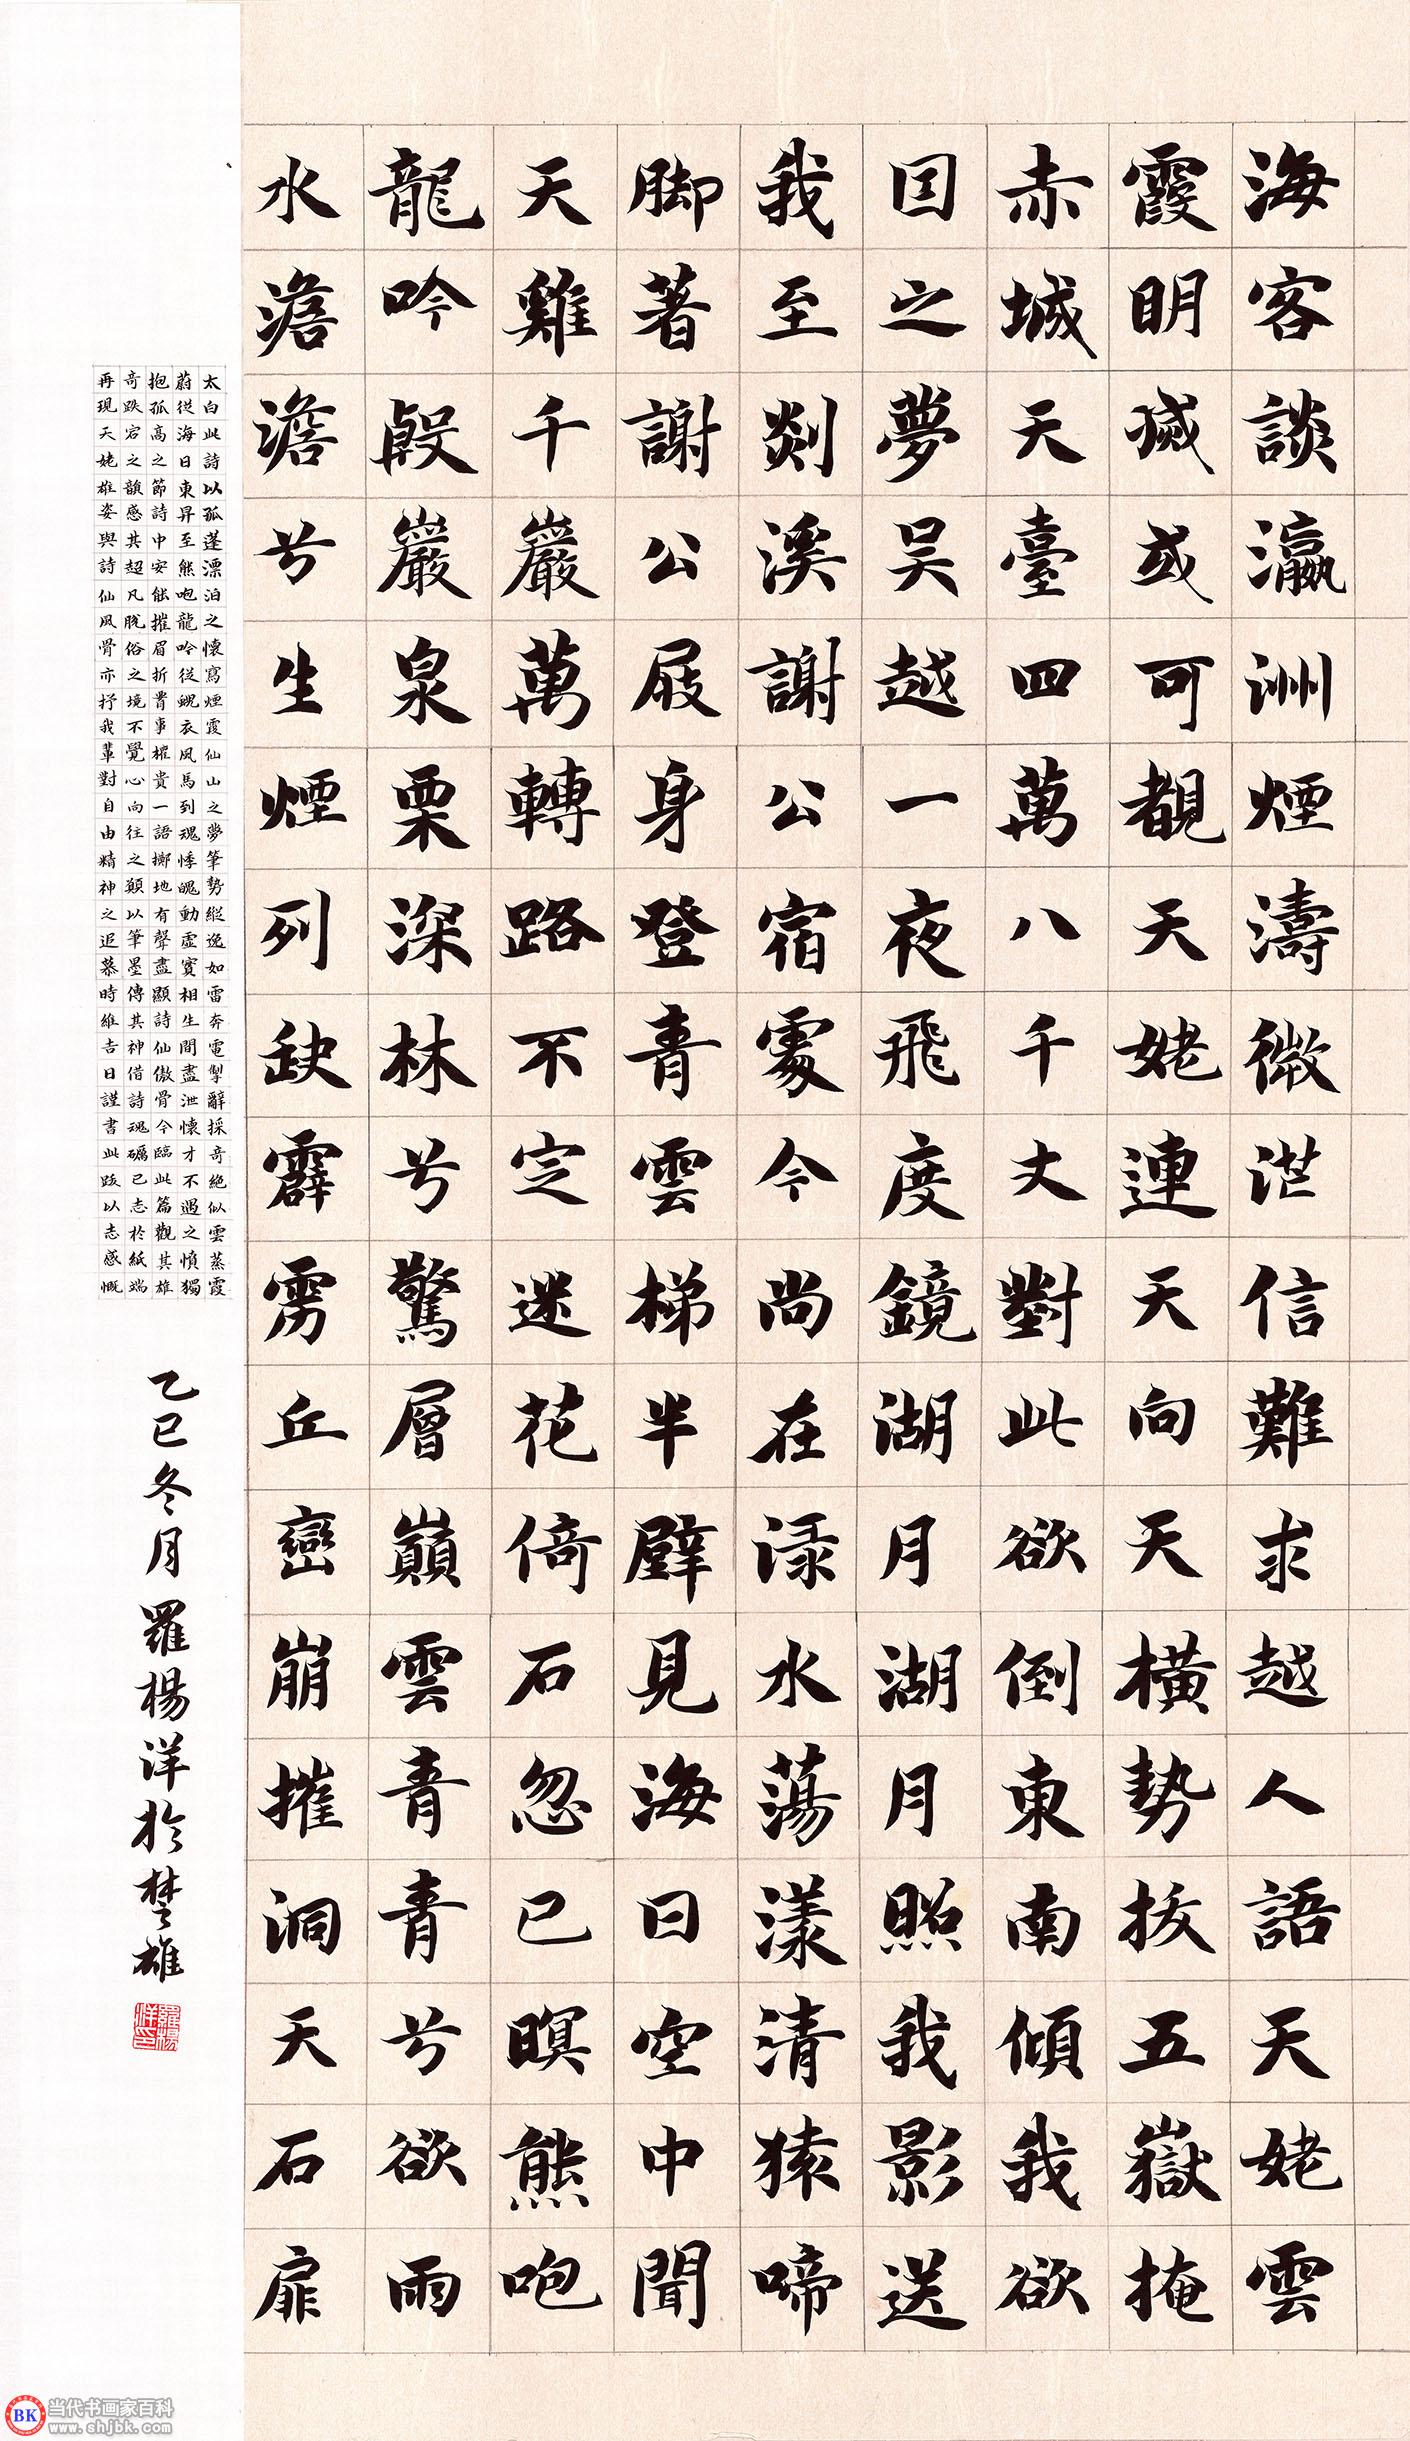 海客談瀛洲煙濤微茫信難求越人語天姥雲
霞明滅或可覩天姥連天向天橫勢拔五嶽掩
赤城天臺四萬八千丈對此欲倒東南傾我欲
因之夢吳越一夜飛度鏡湖月湖月照我影送
我至剡溪謝公宿處今尚在淥水蕩漾清猿啼
脚著謝公屐身登青雲梯半壁見海日空中聞
天雞千巖萬轉路不定迷花倚石忽已暝熊咆
龍吟殷巖泉栗深林兮驚層巔雲青青兮欲雨
水澹澹兮生煙列缺霹靂丘巒崩摧洞天石扉
太白此詩以孤蓬漂泊之懷寫煙霞仙山之夢筆勢縱逸如雷奔電掣辭採奇絕似雲蒸霞
蔚從海日東昇至熊咆龍吟從霓衣風馬到魂悸魄動虛實相生間盡泄懷才不遇之憤獨
抱孤高之節詩中安能摧眉折腰事權貴一語擲地有聲盡顯詩仙傲骨今臨此篇觀其雄
奇跌宕之韻感其超凡脫俗之境不覺心向往之願以筆墨傳其神借詩魂礪己志於紙端
再現天姥雄姿與詩仙風骨亦抒我輩對自由精神之追慕時維吉日謹書此跋以志感慨
乙巳冬月羅楊洋於楚雄
羅楊洋印
BK 当代书画家百科
www.shjbk.com